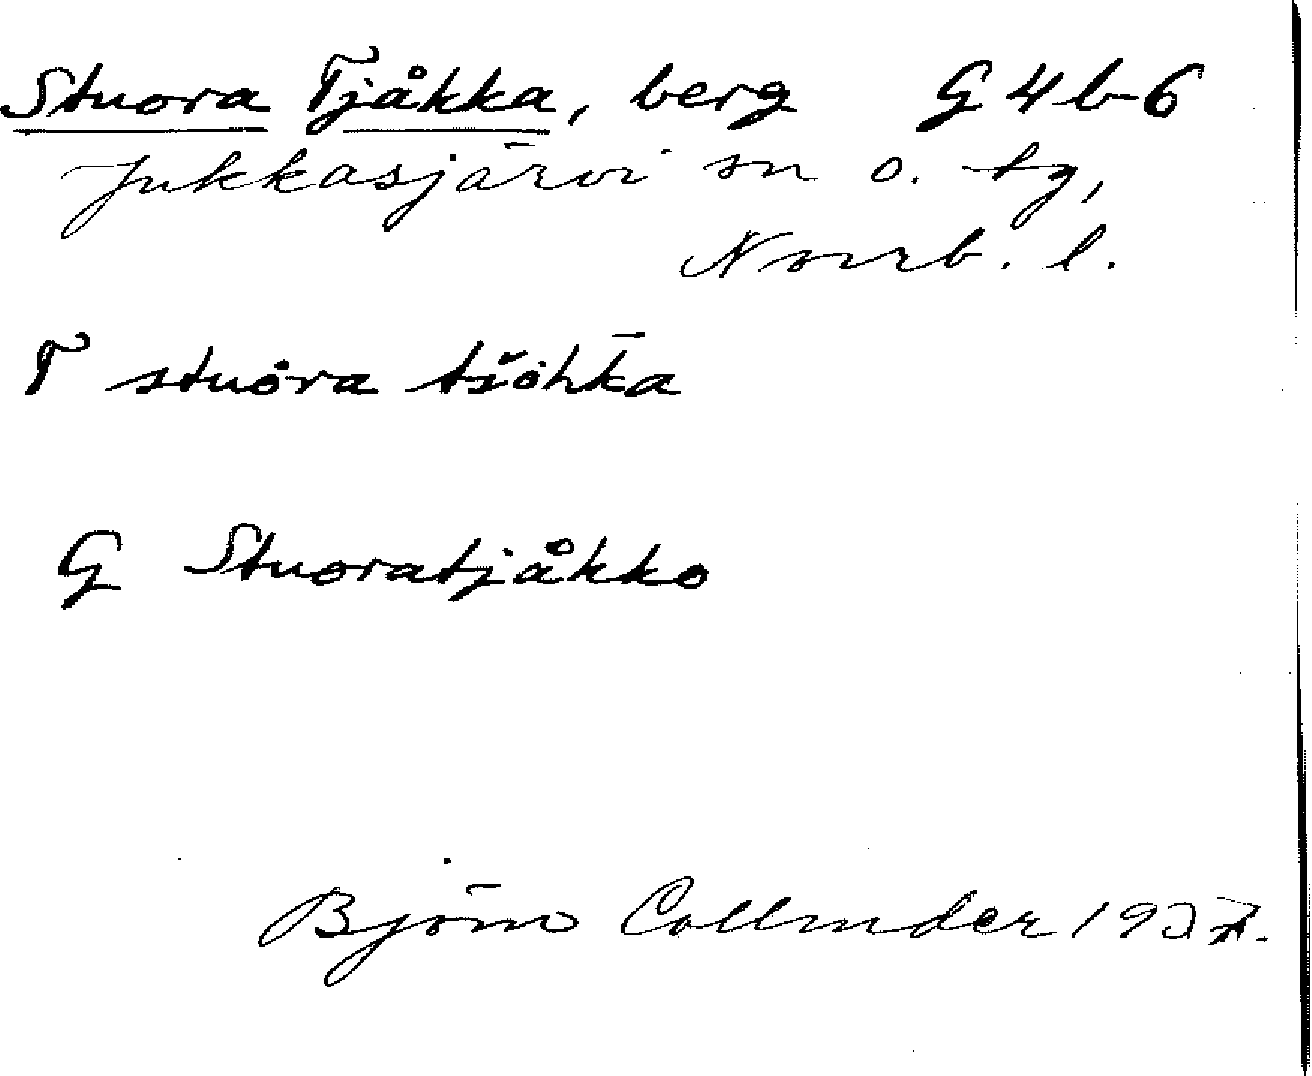 Stuora Tjåkka, berg G 4 b-6
Jukkasjärvi sn o. tg,
Norrb. l.
T stuȯra tšȯhk̄a
G Stuoratjåkko
Björn Collinder